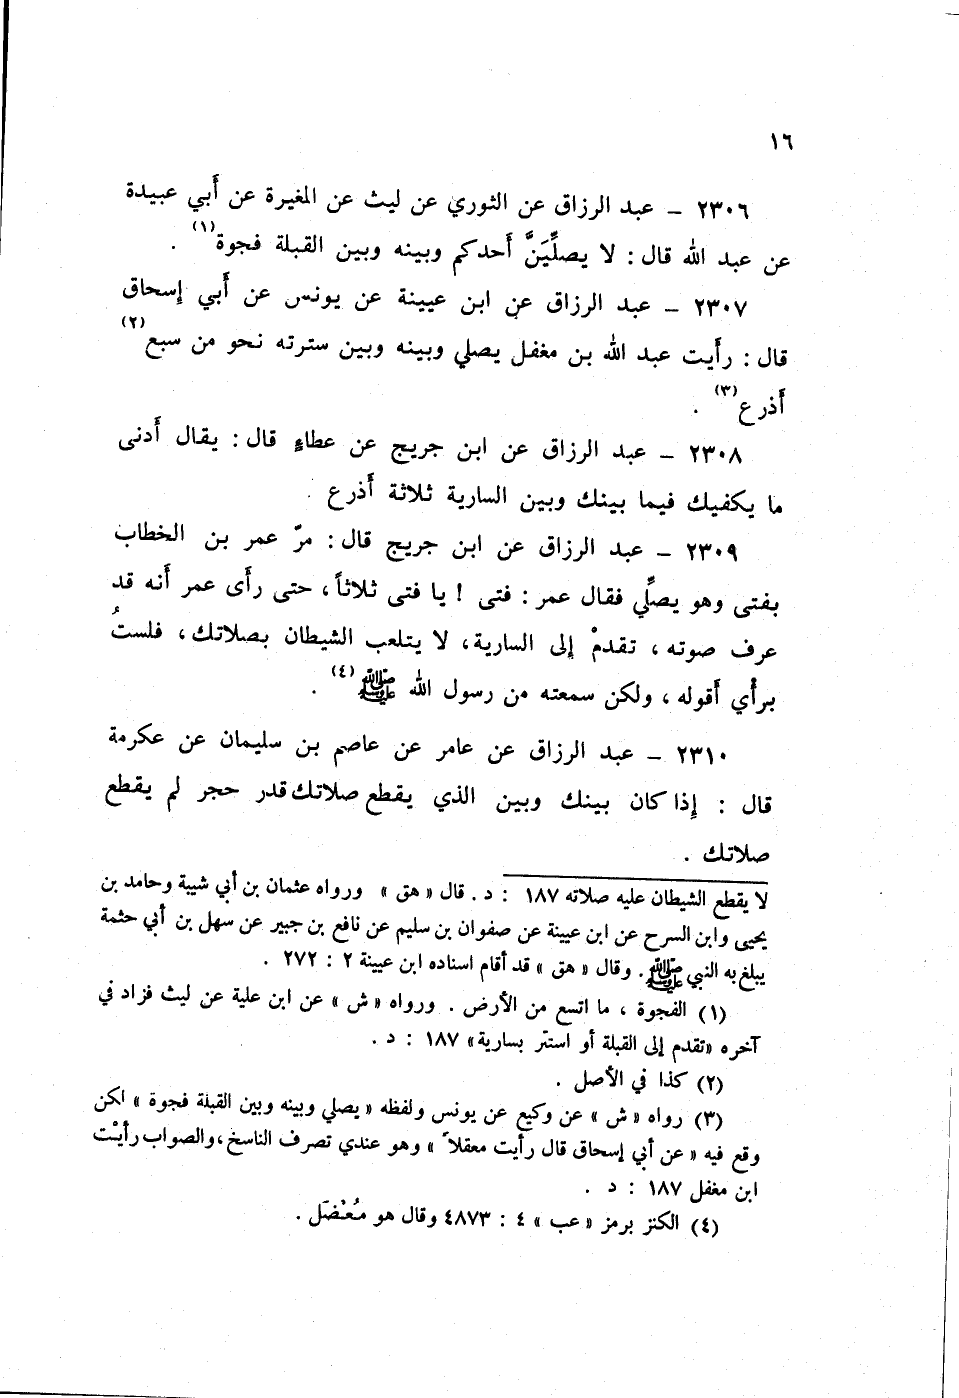 ١٦
٢٣٠٦ – عبد الرزاق عن الثوري عن ليث عن المغيرة عن أَبي عبيدة
عن عبد الله قال : لا يصلِّيَنَّ أَحدكم وبينه وبين القبلة فجوة(١) .
٢٣٠٧ – عبد الرزاق عن ابن عيينة عن يونس عن أَبي إسحاق
قال : رأَيت عبد الله بن مغفل يصلي وبينه وبين سترته نحو من سبع(٢)
أَذرع(٣) .
٢٣٠٨ – عبد الرزاق عن ابن جريج عن عطاءٍ قال : يقال أَدنى
ما يكفيك فيما بينك وبين السارية ثلاثة أَذرع .
٢٣٠٩ – عبد الرزاق عن ابن جريج قال : مرّ عمر بن الخطاب
بفتى وهو يصلِّي فقال عمر : فتى ! يا فتى ثلاثاً ، حتى رأَى عمر أَنه قد
عرف صوته ، تقدمْ إلى السارية ، لا يتلعب الشيطان بصلاتك ، فلستُ
برأْي أَقوله ، ولكن سمعته من رسول الله ﷺ(٤) .
٢٣١٠ – عبد الرزاق عن عامر عن عاصم بن سليمان عن عكرمة
قال : إذا كان بينك وبين الذي يقطع صلاتك قدر حجر لم يقطع
صلاتك .
لا يقطع الشيطان عليه صلاته ١٨٧ : د . قال « هق » ورواه عثمان بن أبي شيبة وحامد بن
يحيى وابن السرح عن ابن عيينة عن صفوان بن سليم عن نافع بن جبير عن سهل بن أبي حثمة
يبلغ به النبي ﷺ . وقال « هق » قد أقام اسناده ابن عيينة ٢ : ٢٧٢ .
(١) الفجوة ، ما اتسع من الأرض . ورواه « ش » عن ابن علية عن ليث فزاد في
آخره «تقدم إلى القبلة أو استتر بسارية» ١٨٧ : د .
(٢) كذا في الأصل .
(٣) رواه « ش » عن وكيع عن يونس ولفظه « يصلي وبينه وبين القبلة فجوة » لكن
وقع فيه « عن أبي إسحاق قال رأيت معقلاً » وهو عندي تصرف الناسخ ، والصواب رأيْت
ابن مغفل ١٨٧ : د .
(٤) الكنز برمز « عب » ٤ : ٤٨٧٣ وقال هو مُعْضَل .